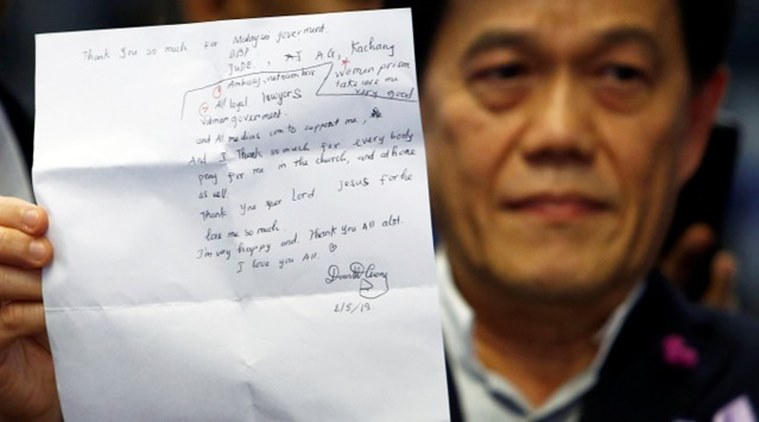 Thank You so much for Malaysia goverment.
DPP
JUDE, AG, Kachang
Women prison
take care me
very good
① Ambassy,
② All loyal lawyers
Vietnam government.
and All medias come to support me,
And I Thank so much for every body
pray for me in the church, and at home
as well.
Thank you your Lord Jesus for the
love me so much.
I'm very happy and. Thank You All alot.
I love you All.
2/5/19.